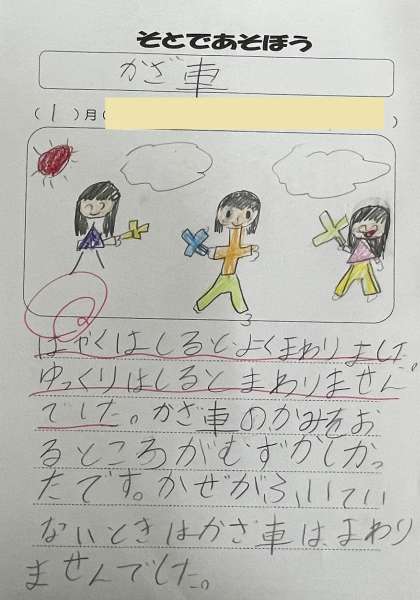 そとであそぼう
かざ車
(1)月(
)
はやくはしるとよくまわりました
ゆっくりはしるとまわりません
でした。かざ車のかみをお
るところがむずかしかっ
たです。かぜがふいてい
ないときはかざ車はまわり
ませんでした。